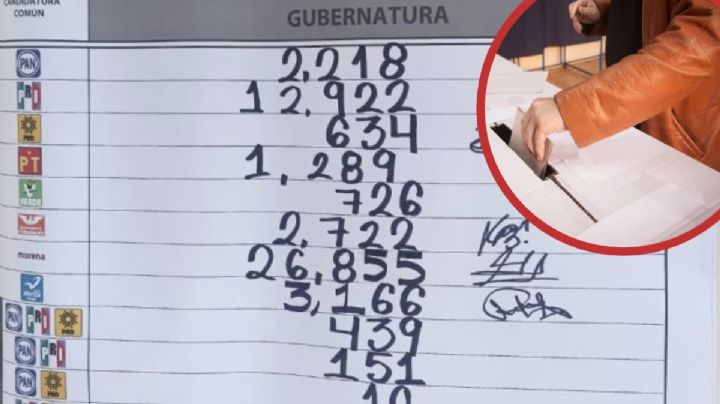 CANDIDATURA
COMÚN
GUBERNATURA
PAN 2,218
PRI 12,922
PRD 634
PT 1,289
VERDE 726
2,722
morena 26,855
3,166
PAN PRI PRD 439
PAN PRI 151
PAN PRD 10